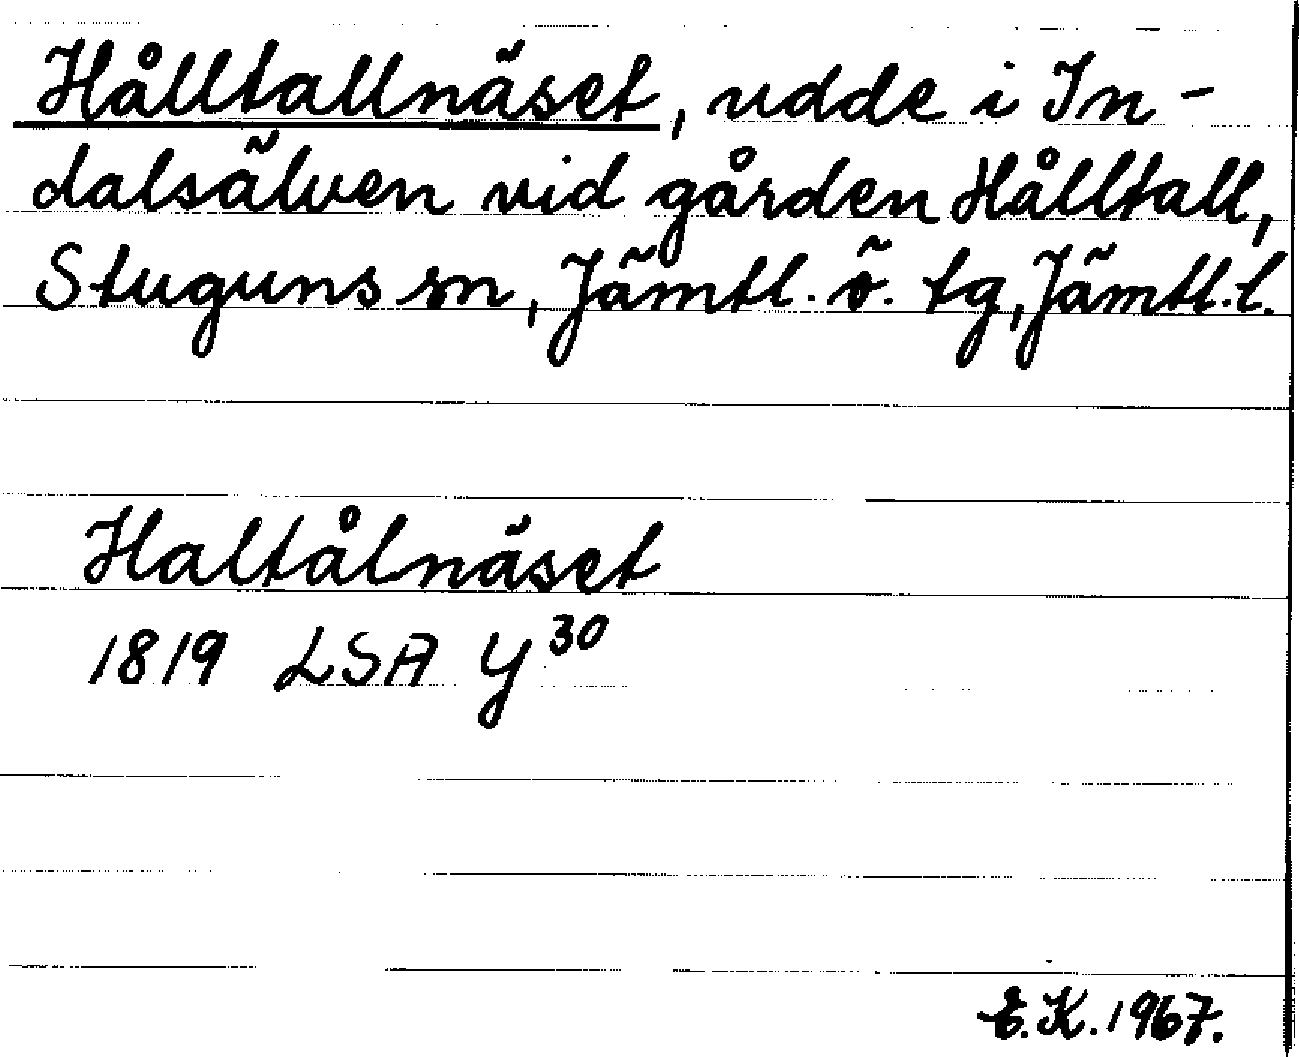 Hålltallnäset, udde i In-
dalsälven vid gården Hålltall,
Stuguns sn, Jämtl. ö. tg, Jämtl. l.
Haltålnäset
1819 LSA Y30
E.K. 1967.